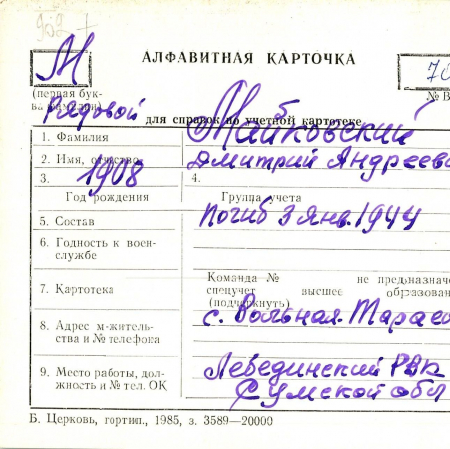 952 7
АЛФАВИТНАЯ КАРТОЧКА
М
70
(первая бук-
ва фамилии)
№ В
рядовой
для справок по учетной картотеке
1. Фамилия Майковский
2. Имя, отчество Дмитрий Андреев
3. 1908 4.
Год рождения Группа учета
5. Состав Погиб 3 янв. 1944
6. Годность к воен-
службе
Команда № не предназначе
7. Картотека спецучет высшее образован
(подчеркнуть)
с. Вольная-Тарасо
8. Адрес м-житель-
ства и № телефона
Лебединский РВК
9. Место работы, дол-
жность и № тел. ОК Сумской обл
Б. Церковь, гортип., 1985, з. 3589—20000